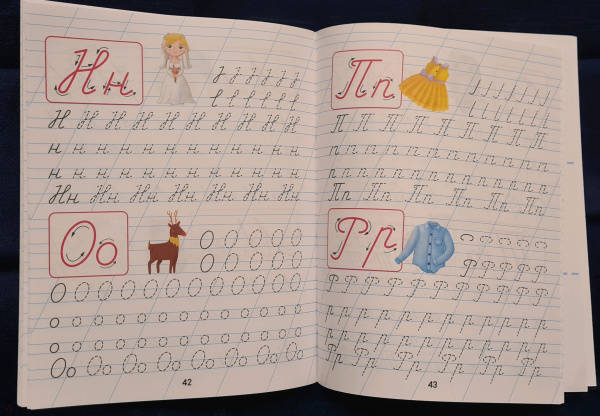 Нн
Н Н Н Н Н Н Н Н Н Н
н н н н н н н н н н н
н н н н н н н н н н н
Нн Нн Нн Нн Нн Нн Нн
Оо
О О О О О
О О О О О
О О О О О О О О О О О
о о о о о о о о о о о о
о о о о о о о о о о о о
Оо Оо Оо Оо Оо Оо Оо Оо
42
Пп
П П П П П П П П П
п п п п п п п п п п п п
п п п п п п п п п п п п
Пп Пп Пп Пп Пп Пп
Рр
Р Р Р Р Р
Р Р Р Р Р Р Р Р Р Р Р
р р р р р р р р р р
р р р р р р р р р р
Рр Рр Рр Рр Рр Рр
43